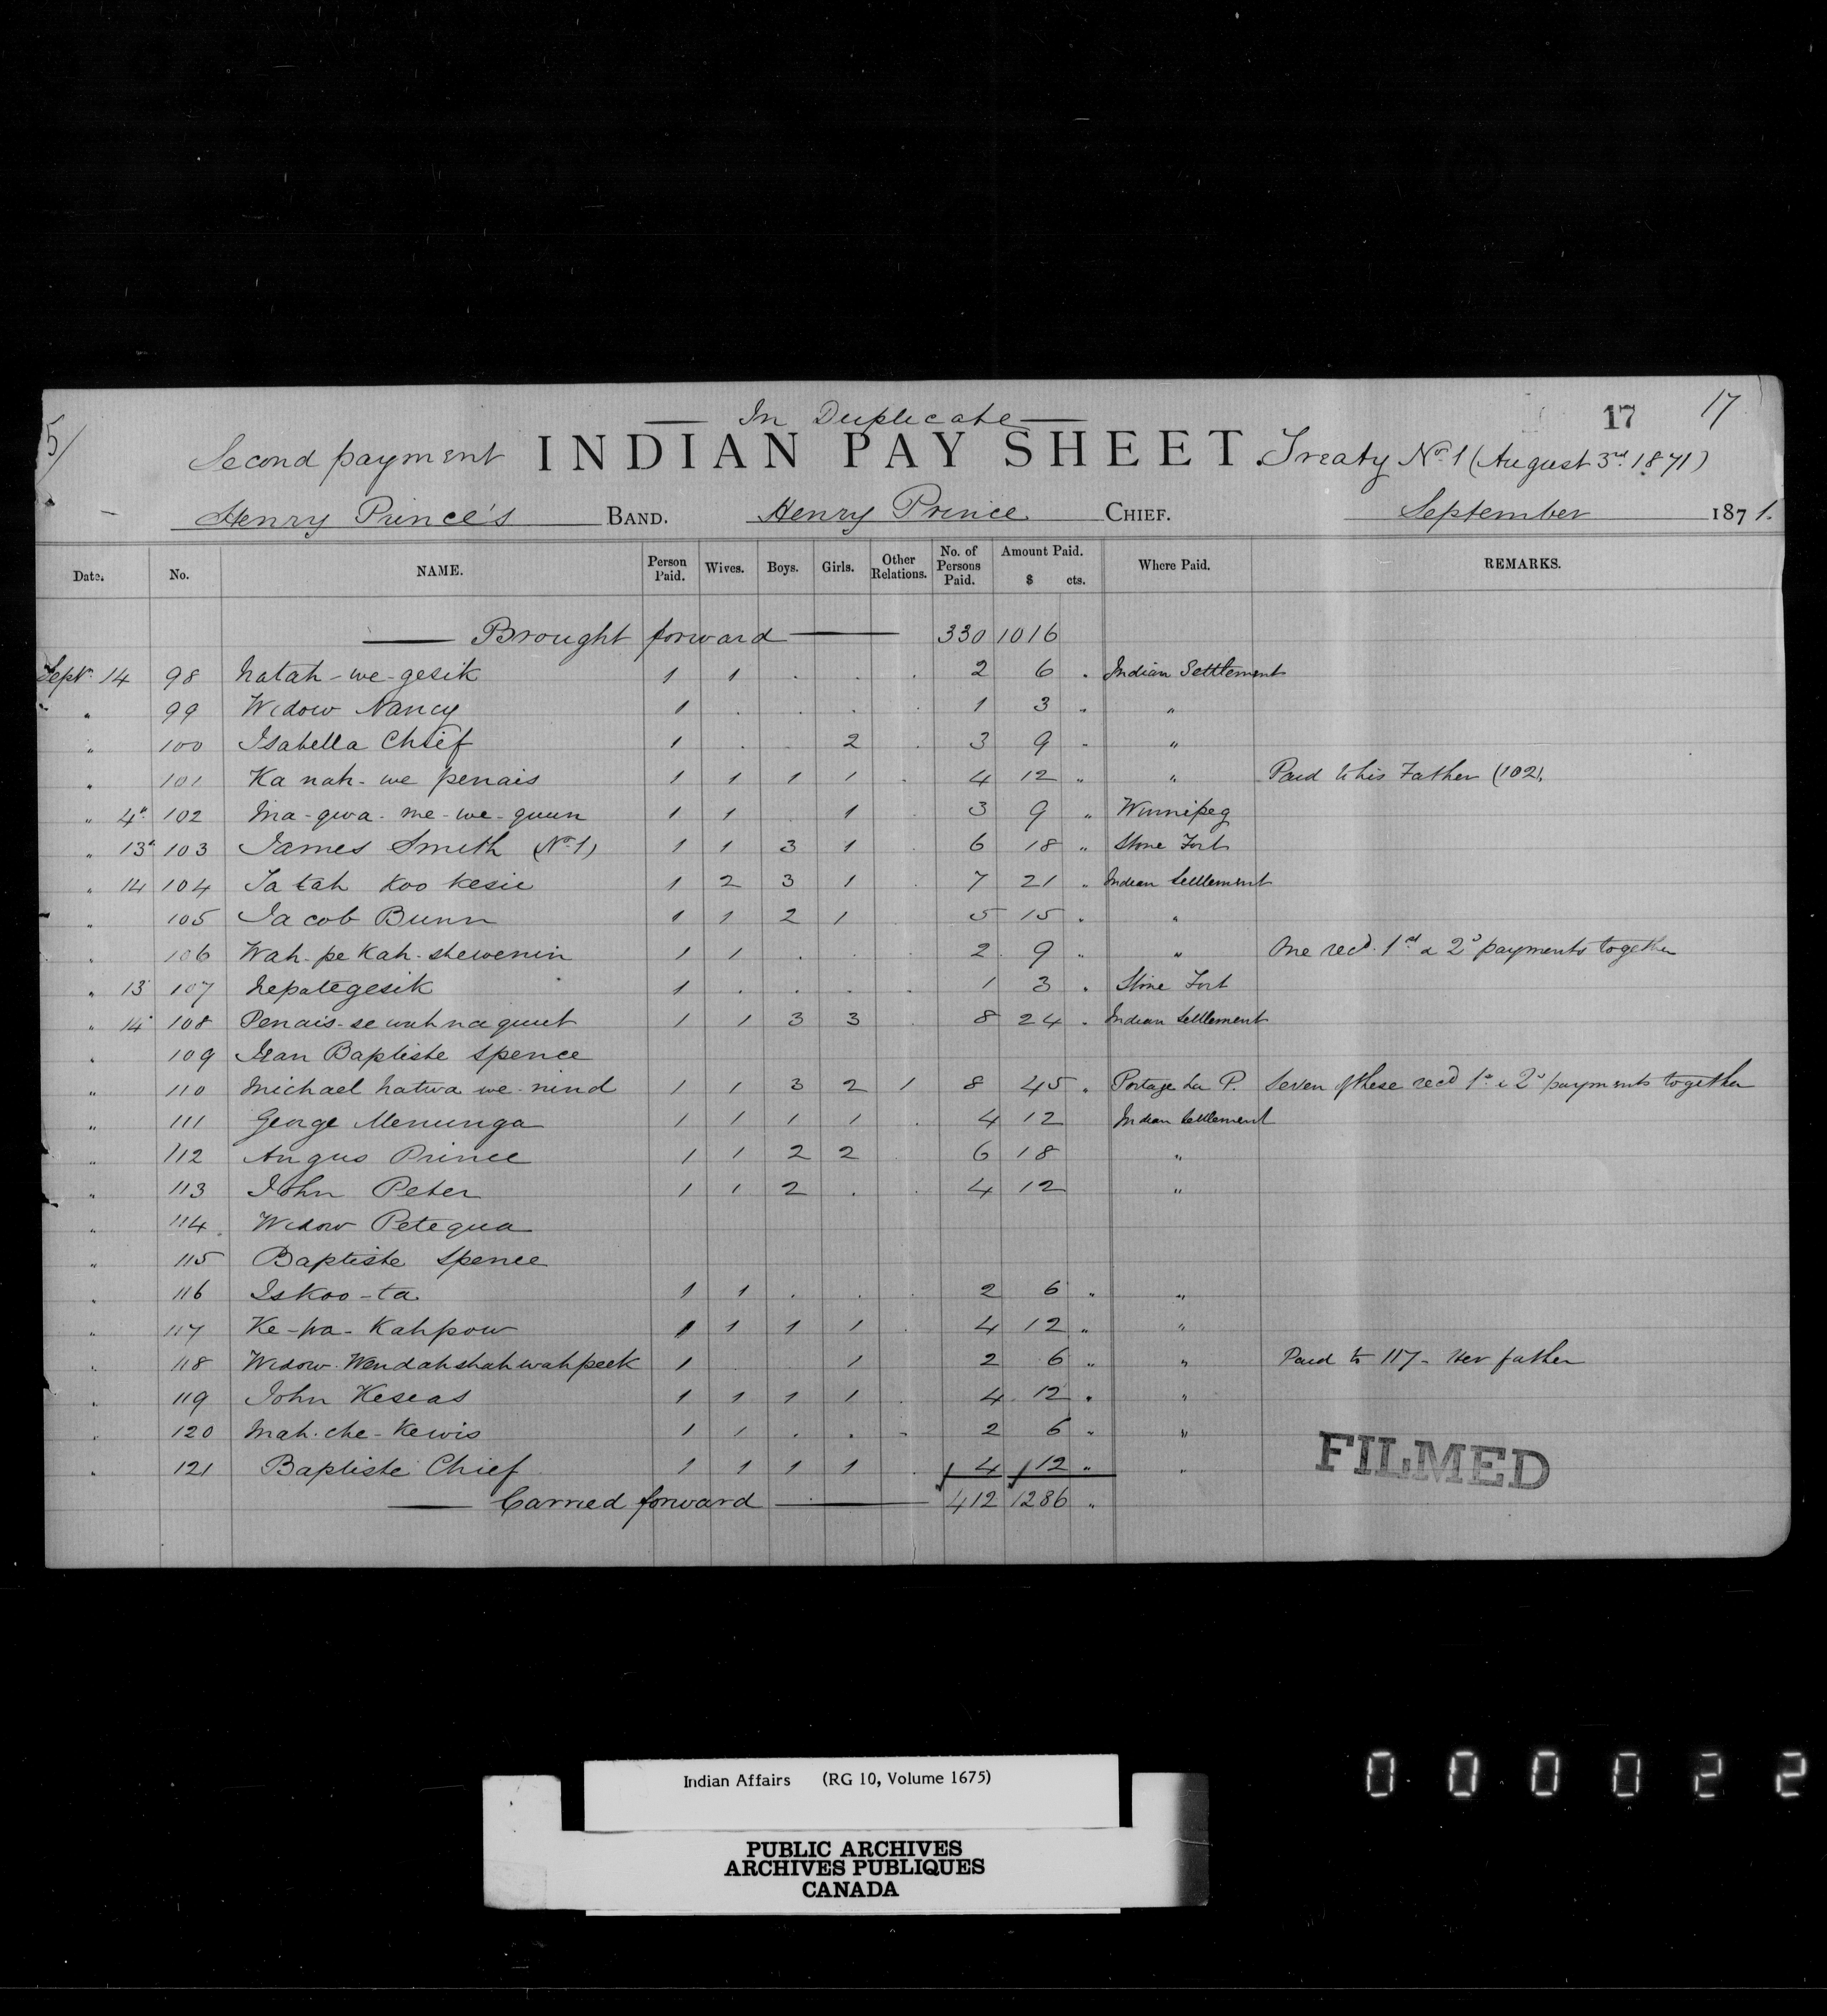 5/
— In Duplicate —
17 17
Second payment INDIAN PAY SHEET. Treaty No. 1 (August 3rd 1871)
Henry Prince's BAND. Henry Prince CHIEF. September 1871.
Date. No. NAME. Person Paid. Wives. Boys. Girls. Other Relations. No. of Persons Paid. Amount Paid. $ cts. Where Paid. REMARKS.
— Brought forward — 330 1016
Sept. 14 98 Natah-we-gesik 1 1 . . . 2 6 . Indian Settlement
" 99 Widow Nancy 1 . . . . 1 3 " "
" 100 Isabella Chief 1 . . 2 . 3 9 " "
" 101 Ka nah-we penais 1 1 1 1 . 4 12 " " Paid to his Father (102).
" 4" 102 Ma-gwa-me-we-guun 1 1 . 1 . 3 9 " Winnipeg
" 13" 103 James Smith (No. 1) 1 1 3 1 . 6 18 " Stone Fort
" 14 104 Ta tah Koo kesic 1 2 3 1 . 7 21 " Indian Settlement
" 105 Jacob Bunn 1 1 2 1 . 5 15 " "
" 106 Wah-pe Kah-shewenin 1 1 . . . 2 9 " " One recd. 1st & 2d payments together
" 13 107 Nepategesik 1 . . . . 1 3 . Stone Fort
" 14 108 Penais-se wah na quut 1 1 3 3 . 8 24 . Indian Settlement
" 109 Jean Baptiste Spence
" 110 Michael Natwa we-nind 1 1 3 2 1 8 45 " Portage La P. Seven of these recd 1st & 2d payments together
" 111 George Menunga 1 1 1 1 . 4 12 Indian Settlement
" 112 Angus Prince 1 1 2 2 . 6 18 "
" 113 John Peter 1 1 2 . . 4 12 "
" 114 Widow Petequa
" 115 Baptiste Spence
" 116 Iskoo-ta 1 1 . . . 2 6 " "
" 117 Ke-wa-Kahpow 1 1 1 1 . 4 12 " "
" 118 Widow Wendahshahwahpeek 1 . . 1 2 6 " " Paid to 117 - Her father
" 119 John Keseas 1 1 1 1 . 4 12 " "
" 120 Mah-che-Kewis 1 1 . . . 2 6 " "
" 121 Baptiste Chief 1 1 1 1 . 4 12 " "
— Carried forward — 412 1286 "
FILMED
Indian Affairs (RG 10, Volume 1675)
PUBLIC ARCHIVES
ARCHIVES PUBLIQUES
CANADA
000022